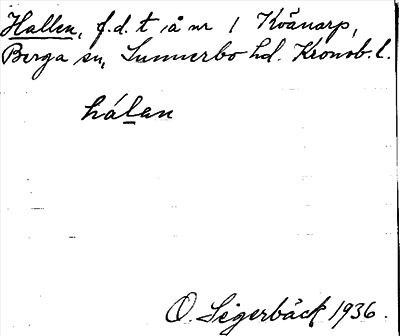 Hallen, f.d. t å nr 1 Kvänarp,
Berga sn, Sunnerbo hd. Kronob. l.
hálan
O. Segerbäck 1936.